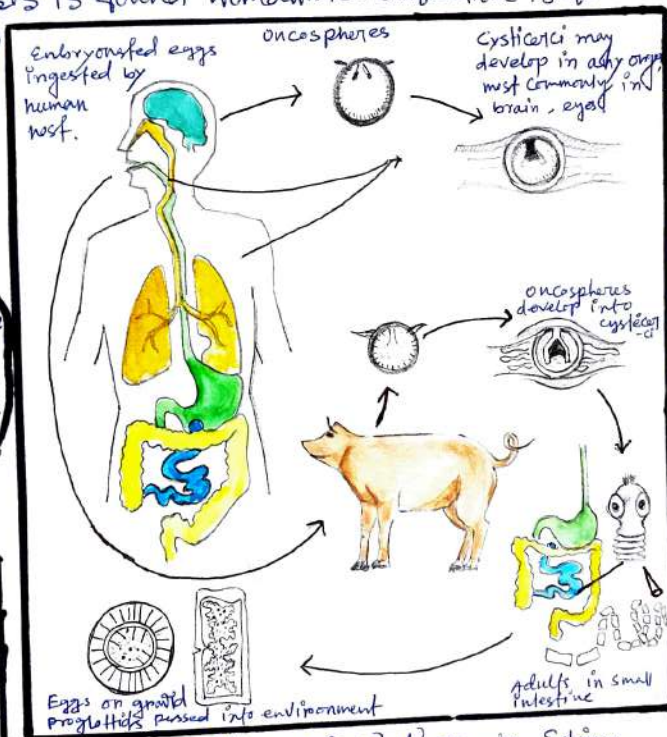 Embryonated eggs
ingested by
human
host.
Oncospheres
Cysticerci may
develop in any organ
most commonly in
brain, eyes
oncospheres
develop into
cysticer
-ci
Adults in small
intestine
Eggs or gravid
proglottids passed into environment